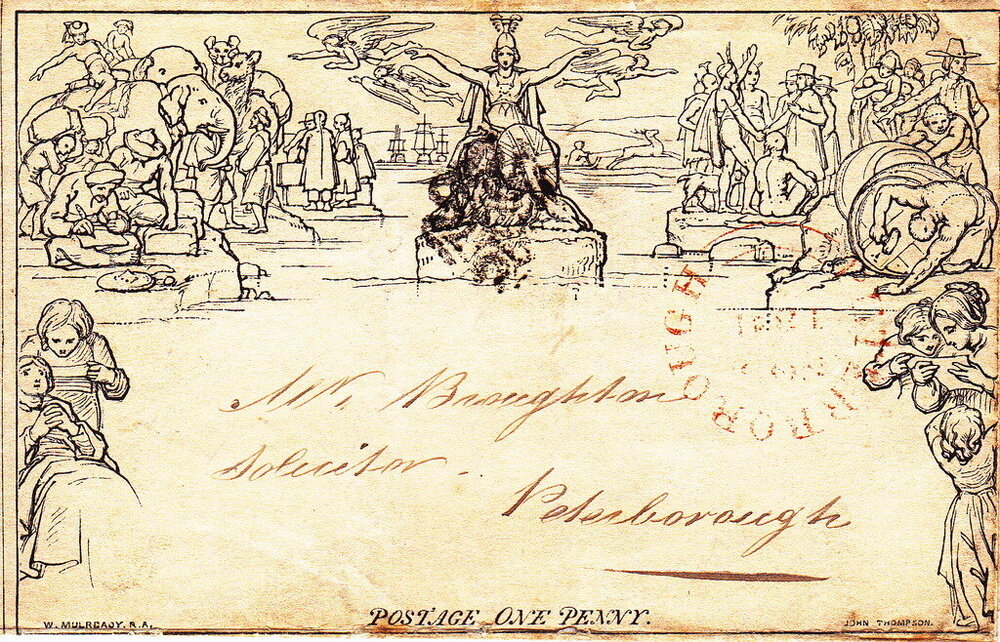 Mr. Broughton
Solicitor.
Peterborough
POSTAGE ONE PENNY.
W. MULREADY. R.A.
JOHN THOMPSON.